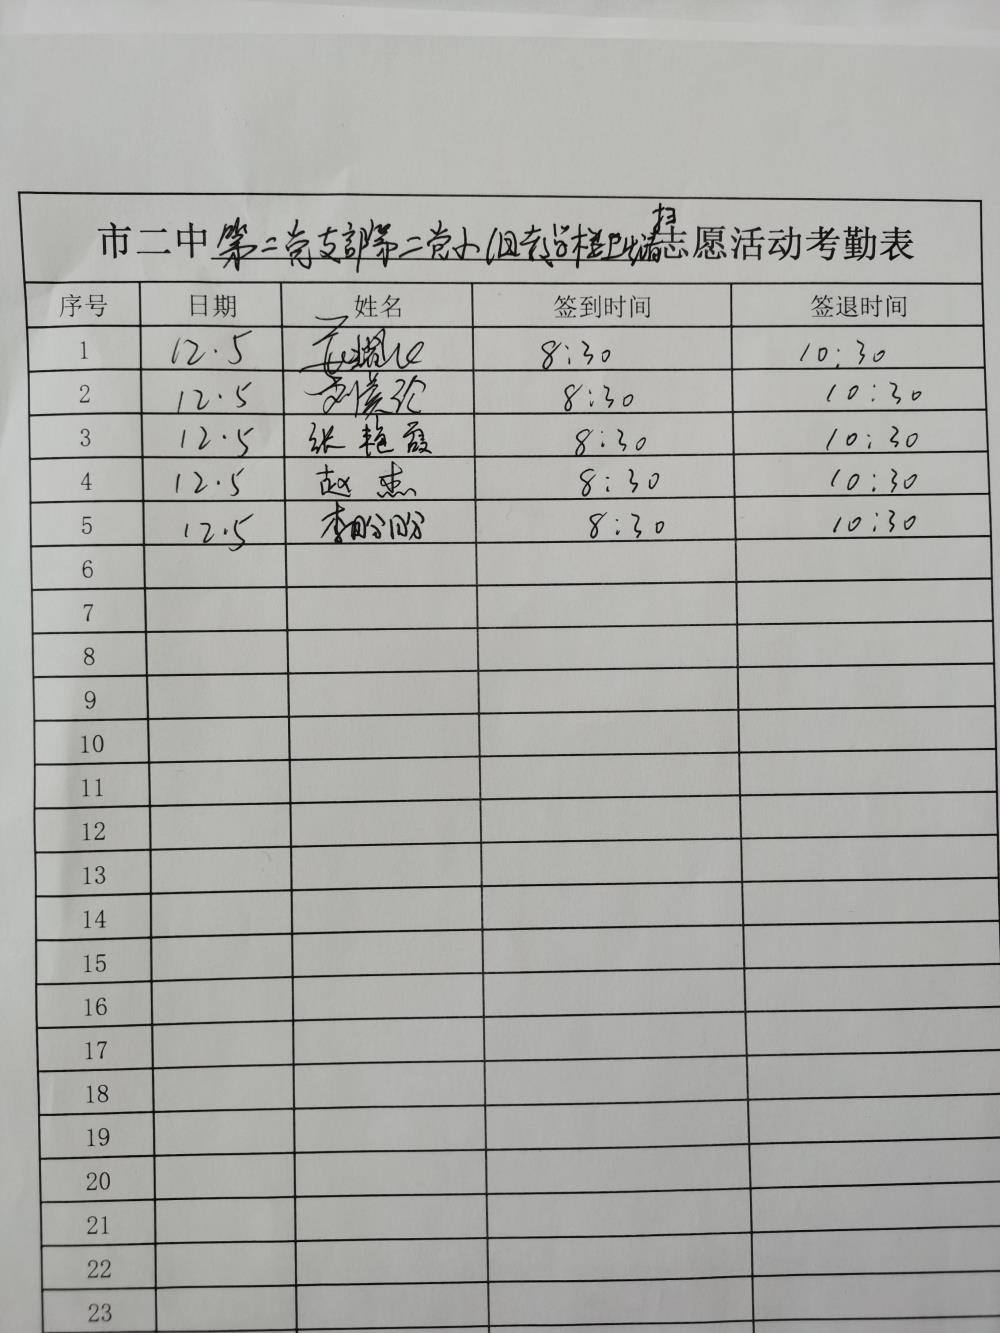 市二中第二党支部第二党小组教学楼卫生清扫志愿活动考勤表
序号 日期 姓名 签到时间 签退时间
1 12.5 8:30 10:30
2 12.5 8:30 10:30
3 12.5 张艳霞 8:30 10:30
4 12.5 赵杰 8:30 10:30
5 12.5 李盼盼 8:30 10:30
6
7
8
9
10
11
12
13
14
15
16
17
18
19
20
21
22
23